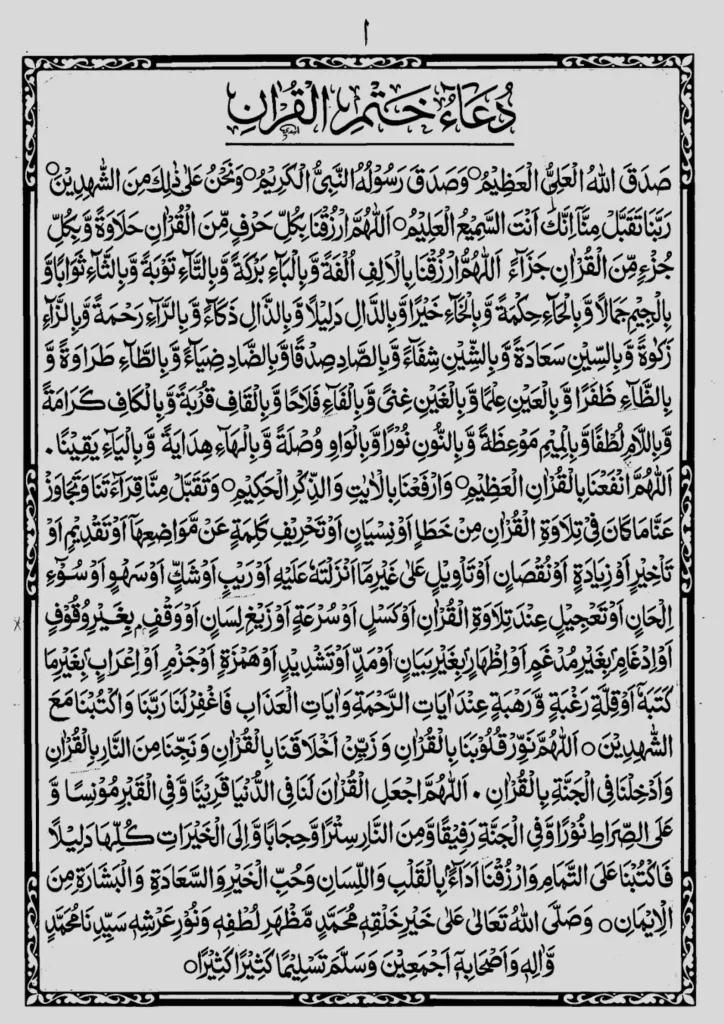 ١
دُعَاءُ خَتْمِ الْقُرْاٰنِ
صَدَقَ اللهُ الْعَلِيُّ الْعَظِيْمُ○ وَصَدَقَ رَسُوْلُهُ النَّبِيُّ الْكَرِيْمُ○ وَنَحْنُ عَلٰى ذٰلِكَ مِنَ الشّٰهِدِيْنَ○
رَبَّنَا تَقَبَّلْ مِنَّا اِنَّكَ اَنْتَ السَّمِيْعُ الْعَلِيْمُ○ اَللّٰهُمَّ ارْزُقْنَا بِكُلِّ حَرْفٍ مِّنَ الْقُرْاٰنِ حَلَاوَةً وَّ بِكُلِّ
جُزْءٍ مِّنَ الْقُرْاٰنِ جَزَآءً اَللّٰهُمَّ ارْزُقْنَا بِالْاَلِفِ اُلْفَةً وَّ بِالْبَآءِ بَرَكَةً وَّ بِالتَّآءِ تَوْبَةً وَّ بِالثَّآءِ ثَوَابًا وَّ
بِالْجِيْمِ جَمَالًا وَّ بِالْحَآءِ حِكْمَةً وَّ بِالْخَآءِ خَيْرًا وَّ بِالدَّالِ دَلِيْلًا وَّ بِالذَّالِ ذَكَآءً وَّ بِالرَّآءِ رَحْمَةً وَّ بِالزَّآءِ
زَكٰوةً وَّ بِالسِّيْنِ سَعَادَةً وَّ بِالشِّيْنِ شِفَآءً وَّ بِالصَّادِ صِدْقًا وَّ بِالضَّادِ ضِيَآءً وَّ بِالطَّآءِ طَرَاوَةً وَّ
بِالظَّآءِ ظَفَرًا وَّ بِالْعَيْنِ عِلْمًا وَّ بِالْغَيْنِ غِنًى وَّ بِالْفَآءِ فَلَاحًا وَّ بِالْقَافِ قُرْبَةً وَّ بِالْكَافِ كَرَامَةً
وَّ بِاللَّامِ لُطْفًا وَّ بِالْمِيْمِ مَوْعِظَةً وَّ بِالنُّوْنِ نُوْرًا وَّ بِالْوَاوِ وُصْلَةً وَّ بِالْهَآءِ هِدَايَةً وَّ بِالْيَآءِ يَقِيْنًا ۰
اَللّٰهُمَّ انْفَعْنَا بِالْقُرْاٰنِ الْعَظِيْمِ○ وَارْفَعْنَا بِالْاٰيٰتِ وَالذِّكْرِ الْحَكِيْمِ○ وَتَقَبَّلْ مِنَّا قِرَآءَتَنَا وَتَجَاوَزْ
عَنَّا مَا كَانَ فِيْ تِلَاوَةِ الْقُرْاٰنِ مِنْ خَطَاٍ اَوْ نِسْيَانٍ اَوْ تَحْرِيْفِ كَلِمَةٍ عَنْ مَّوَاضِعِهَآ اَوْ تَقْدِيْمٍ اَوْ
تَاْخِيْرٍ اَوْ زِيَادَةٍ اَوْ نُقْصَانٍ اَوْ تَاْوِيْلٍ عَلٰى غَيْرِ مَآ اَنْزَلْتَهٗ عَلَيْهِ اَوْ رَيْبٍ اَوْ شَكٍّ اَوْ سَهْوٍ اَوْ سُوْٓءِ
اِلْحَانٍ اَوْ تَعْجِيْلٍ عِنْدَ تِلَاوَةِ الْقُرْاٰنِ اَوْ كَسَلٍ اَوْ سُرْعَةٍ اَوْ زَيْغِ لِسَانٍ اَوْ وَقْفٍ بِغَيْرِ وُقُوْفٍ
اَوْ اِدْغَامٍ بِغَيْرِ مُدْغَمٍ اَوْ اِظْهَارٍ بِغَيْرِ بَيَانٍ اَوْ مَدٍّ اَوْ تَشْدِيْدٍ اَوْ هَمْزَةٍ اَوْ جَزْمٍ اَوْ اِعْرَابٍ بِغَيْرِ مَا
كَتَبَهٗ اَوْ قِلَّةِ رَغْبَةٍ وَّرَهْبَةٍ عِنْدَ اٰيَاتِ الرَّحْمَةِ وَاٰيَاتِ الْعَذَابِ فَاغْفِرْ لَنَا رَبَّنَا وَاكْتُبْنَا مَعَ
الشّٰهِدِيْنَ○ اَللّٰهُمَّ نَوِّرْ قُلُوْبَنَا بِالْقُرْاٰنِ وَزَيِّنْ اَخْلَاقَنَا بِالْقُرْاٰنِ وَنَجِّنَا مِنَ النَّارِ بِالْقُرْاٰنِ
وَاَدْخِلْنَا فِي الْجَنَّةِ بِالْقُرْاٰنِ ۰ اَللّٰهُمَّ اجْعَلِ الْقُرْاٰنَ لَنَا فِي الدُّنْيَا قَرِيْنًا وَّفِي الْقَبْرِ مُوْنِسًا وَّ
عَلَى الصِّرَاطِ نُوْرًا وَّفِي الْجَنَّةِ رَفِيْقًا وَّمِنَ النَّارِ سِتْرًا وَّحِجَابًا وَّاِلَى الْخَيْرَاتِ كُلِّهَا دَلِيْلًا
فَاكْتُبْنَا عَلَى التَّمَامِ وَارْزُقْنَا اَدَآءً بِالْقَلْبِ وَاللِّسَانِ وَحُبِّ الْخَيْرِ وَالسَّعَادَةِ وَالْبَشَارَةِ مِنَ
الْاِيْمَانِ○ وَصَلَّى اللهُ تَعَالٰى عَلٰى خَيْرِ خَلْقِهٖ مُحَمَّدٍ مَّظْهَرِ لُطْفِهٖ وَنُوْرِ عَرْشِهٖ سَيِّدِنَا مُحَمَّدٍ
وَّاٰلِهٖ وَاَصْحَابِهٖٓ اَجْمَعِيْنَ وَسَلَّمَ تَسْلِيْمًا كَثِيْرًا كَثِيْرًا○